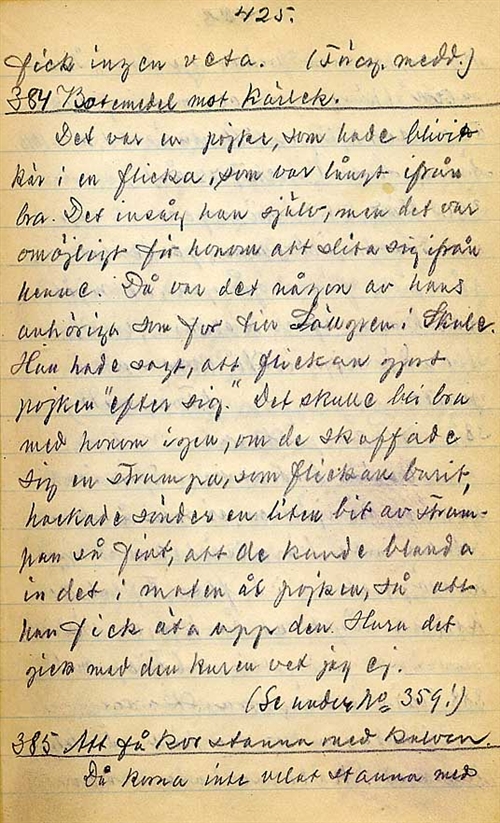 425.
fick ingen veta. (Föreg. medd.)
384 Botemedel mot kärlek.
Det var en pojke, som hade blivit
kär i en flicka, som var långt ifrån
bra. Det insåg han själv, men det var
omöjligt för honom att slita sig ifrån
henne. Då var det någon av hans
anhöriga som for till Dällgren i Skule.
Han hade sagt, att flickan gjort
pojken "efter sig." Det skulle bli bra
med honom igen, om de skaffade
sig en strumpa, som flickan burit,
hackade sönder en liten bit av strum-
pan så fint, att de kunde blanda
in det i maten åt pojken, så att
han fick äta upp den. Huru det
gick med den kuren vet jag ej.
(Se under No 359!)
385 Att få kor stanna med kalven.
Då korna inte velat stanna med